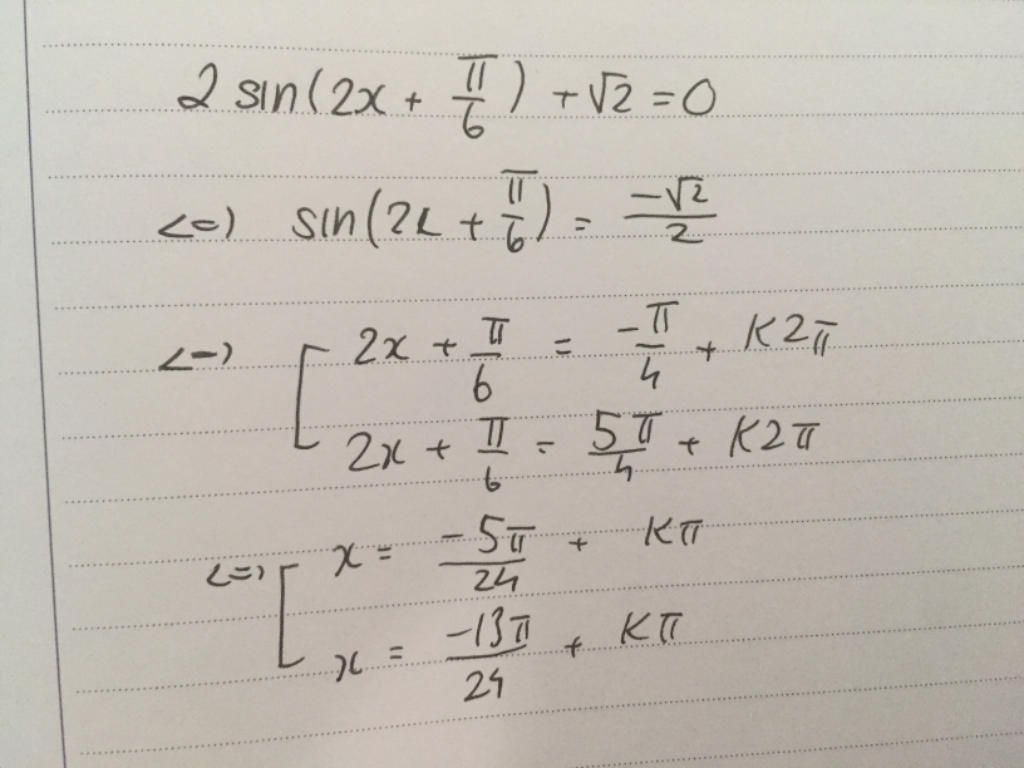 2 sin(2x + π/6) + √2 = 0
<=) sin(2x + π/6) = -√2/2
<=) [ 2x + π/6 = -π/4 + K2π
2x + π/6 = 5π/4 + K2π
<=) [ x = -5π/24 + Kπ
x = -13π/24 + Kπ